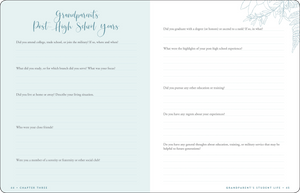 Grandparents
Post-High School Years
Did you attend college, trade school, or join the military? If so, where and when?
What did you study, or the which branch did you serve? What was your focus?
Did you live at home or away? Describe your living situation.
Who were your best friends?
Were you a member of a sorority or fraternity or other social club?
CHAPTER THREE
Did you graduate with a degree (or honors) or attend to a craft? If so, in what?
What were the highlights of your post-high school experience?
Did you pursue any other education or training?
Do you have any regrets about your experiences?
Do you have any general thoughts about education, training, or military service that may be
helpful to future generations?
GRANDPARENT'S STUDENT LIFE